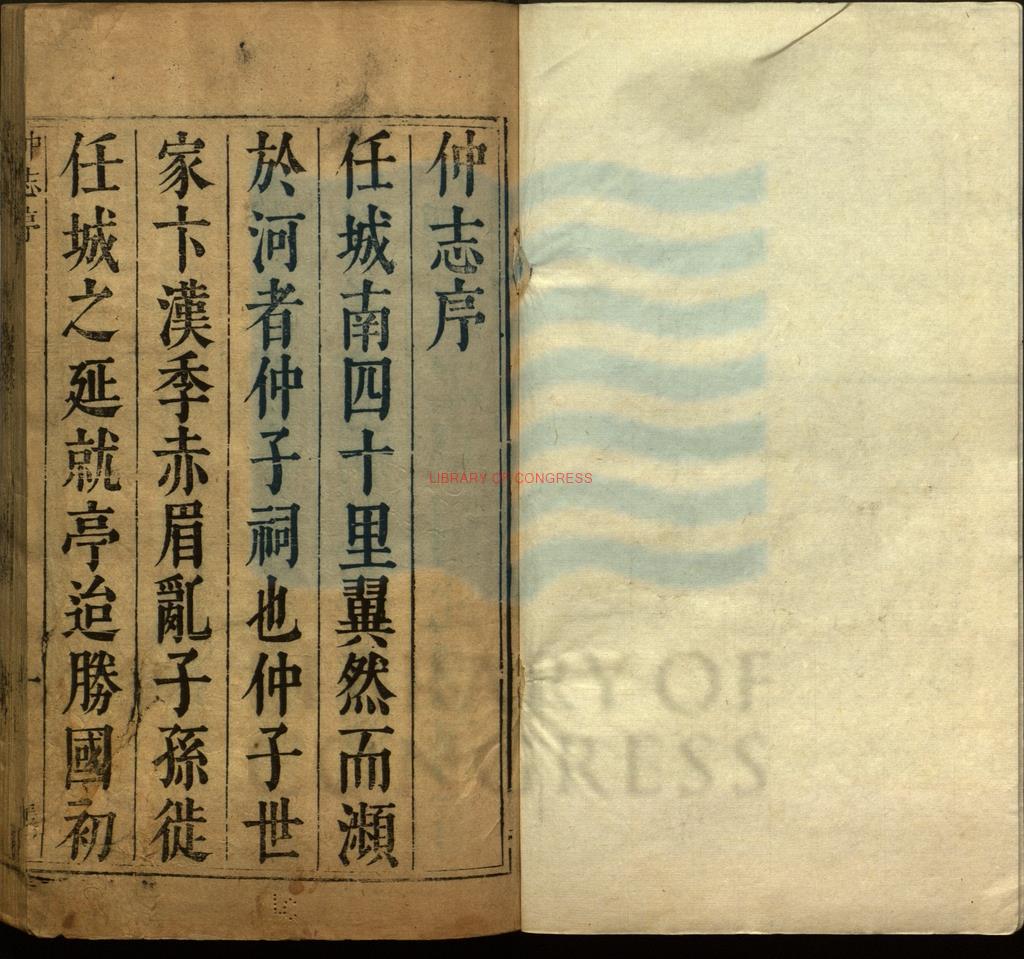 仲志序
任城南四十里翼然而瀕
於河者仲子祠也仲子世
家卞漢季赤眉亂子孫徙
任城之延就亭迨勝國初
仲志序
一
LIBRARY OF CONGRESS
LIBRARY OF
CONGRESS